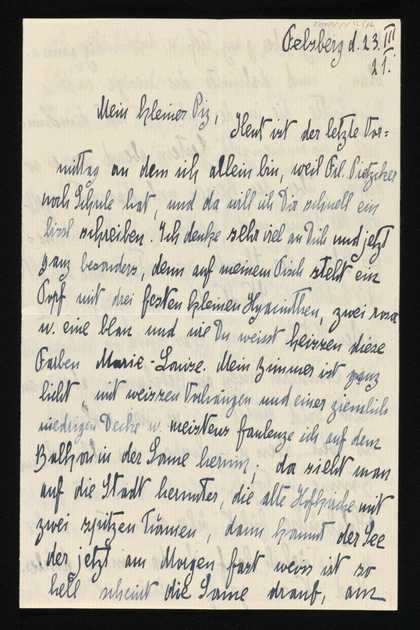 Felsberg d. 23. III
21.
Mein kleiner Piz,
Heut ist der letzte Vor-
mittag an dem ich allein bin, weil Frl. Pietzcker
noch Schule hat, und da will ich Dir schnell ein
bissl schreiben. Ich denke sehr viel an Dich und jetzt
ganz besonders, denn auf meinem Tisch steht ein
Topf mit drei festen kleinen Hyacinthen, zwei rosa
u. eine blau und wie Du weisst heissen diese
Farben Marie-Louise. Mein Zimmer ist ganz
licht, mit weissen Vorhängen und einer ziemlich
niedrigen Decke u. meistens faulenze ich auf dem
Balkon in der Sonne herum; da sieht man
auf die Stadt herunter, die alte Hofkirche mit
zwei spitzen Türmen, dann kommt der See
der jetzt am Morgen fast weiss ist so
hell scheint die Sonne drauf, am